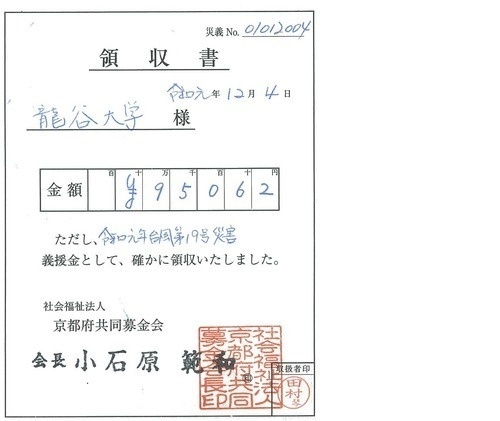 災義 No. 01012004
領収書
令和元年12月4日
龍谷大学 様
百十万千百十円
金額 ¥95062
ただし、令和元年台風第19号災害
義援金として、確かに領収いたしました。
社会福祉法人
京都府共同募金会
会長 小石原 範和 ㊞
社会福祉法人
京都府共同
募金会長印
取扱者印
田村